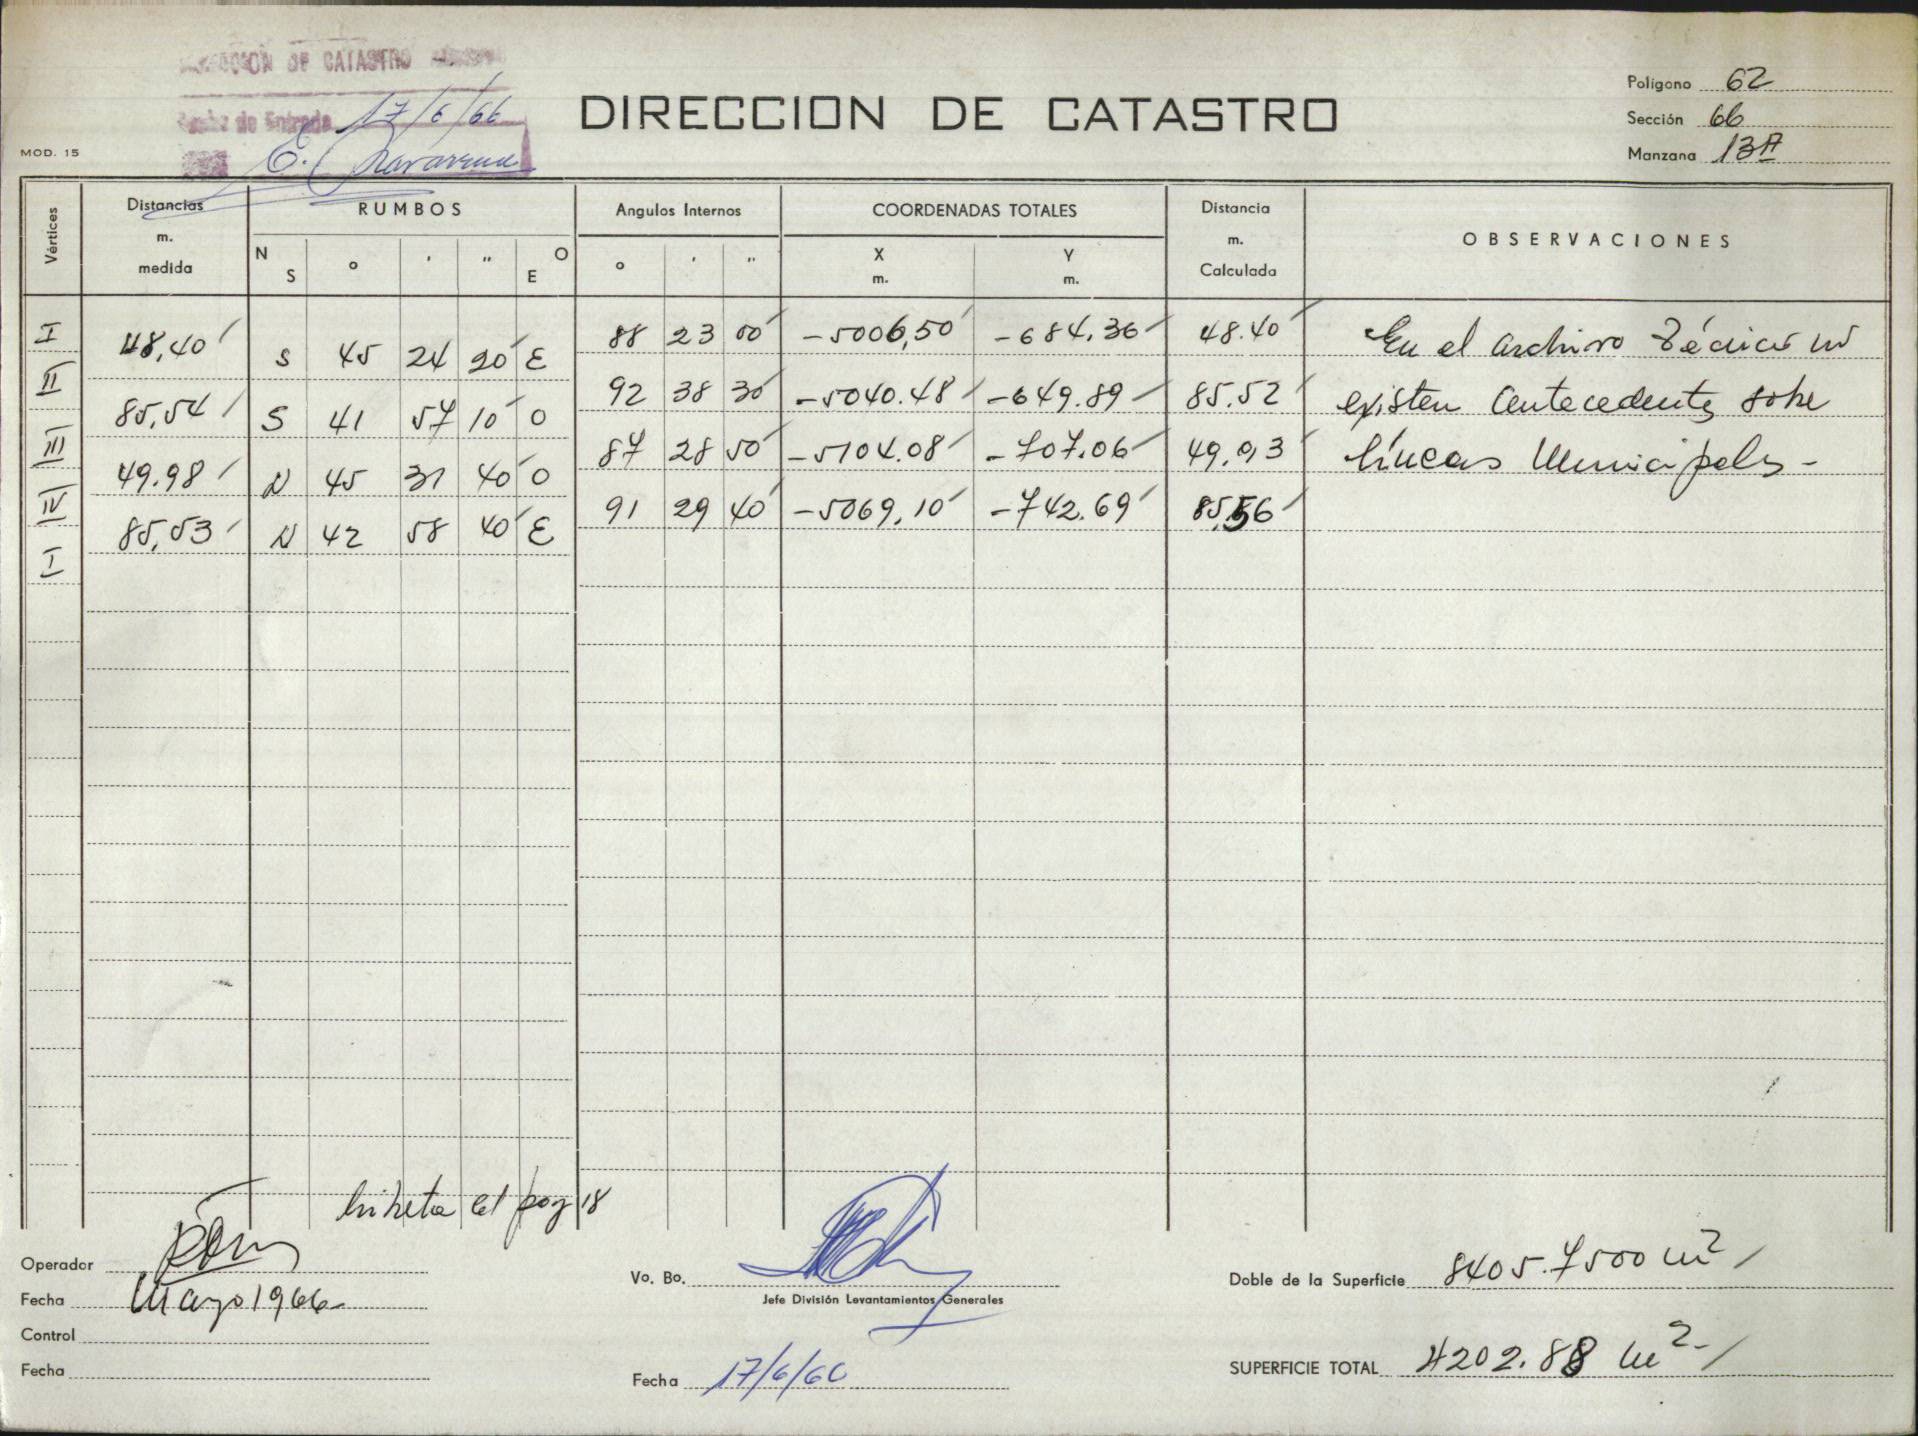 DIRECCION DE CATASTRO
Fecha de Entrada 17/6/66
DIRECCION DE CATASTRO
MOD. 15
Polígono 62
Sección 66
Manzana 13A
Vértices
Distancias m. medida
RUMBOS
N S o ' " O E
Angulos Internos
o ' "
COORDENADAS TOTALES
X m. Y m.
Distancia m. Calculada
OBSERVACIONES
I 88 23 00 -5006,50 -684.36 48.40
48,40 S 45 24 20 E
II 92 38 30 -5040.48 -649.89 85.52
85,54 S 41 57 10 O
III 87 28 50 -5104.08 -707.06 49.93
49.98 N 45 31 40 O
IV 91 29 40 -5069,10 -742.69 85,56
85,53 N 42 58 40 E
I
En el archivo técnico no
existen antecedentes sobre
líneas Municipales -
Operador
Fecha Mayo 1966
Control
Fecha
Vo. Bo.
Jefe División Levantamientos Generales
Fecha 17/6/66
Doble de la Superficie 8405.7500 m2
SUPERFICIE TOTAL 4202.88 m2